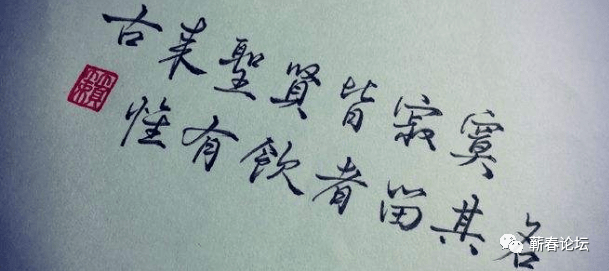 古来聖賢皆寂寞
惟有飲者留其名
蕲春论坛